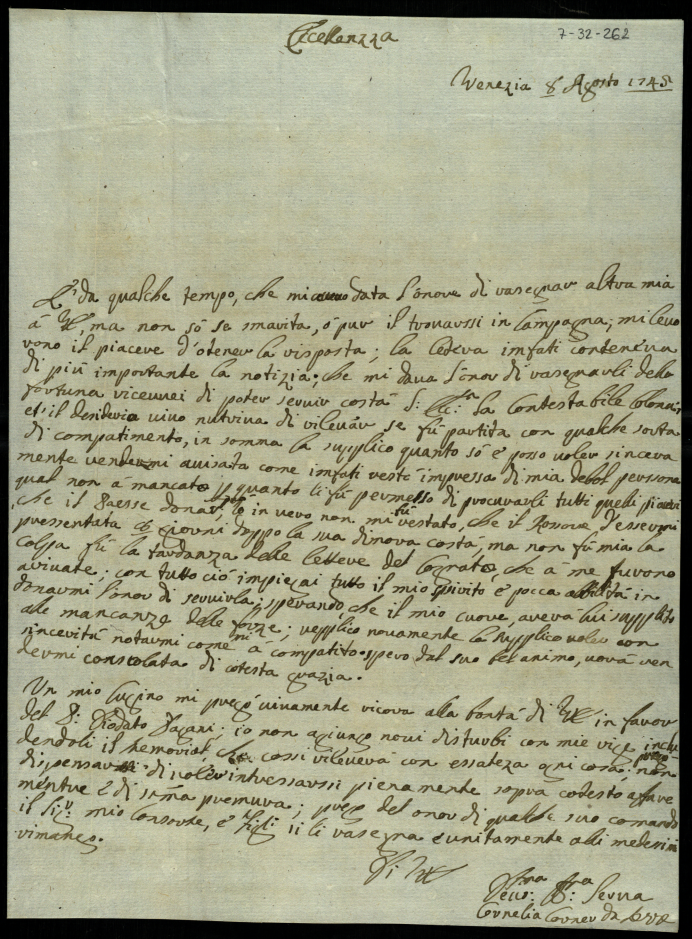 Eccellenzza
7-32-262
Venezia 8 Agosto 1748
È da qualche tempo, che mi data l'onore di rasegnar altra mia
à VE, ma non só se smarita, ó pur il trovarssi in Campagna, mi leva
rono il piacere d'otener la risposta; la Letera imfati conteneva
di piú importante la notizia, che mi dava l'onor di rasegnarli dello
fortuna ricevuei di poter servir costá S: Ecc: la Contestabile Colonna
et il deniderio vivo nutriva di rilevar se fú partita con qualche sorta
di compatimento, in somma la supplico quanto só é posso voler sincera
mente rendermi avisata come imfati restó impressa di mia debol perssona
qual non à mancato p quanto li fú permesso di procurarli tutti quelli piaceri
che il Paesse donar, le in vero non mi fú restato, che il Rossore d'essermi
pressentata giorni doppo la sua dimora costá, ma non fú mia la
Colpa fú la tardanza delle lettere del che à me furono
arivate; con tutto ció impiegai tutto il mio spirito é pocca abilitá in
donarmi l'onor di servirla; sperando che il mio cuore, averá lui supplito
alle mancanze delle forze; replico novamente la supplico voler con
sinceritá notarmi come mi à compatito, spero dal suo bel animo, vorá ren
dermi consolata di cotesta grazia.
Un mio Cugino mi pregó vivamente ricora alla bontá di VE in favor
del S: Diodato Pagani; io non agiungo novi disturbi con mie righe inclu
dendoli il Memorial, che cossi rileverá con essateza ogni cosa; prego non
dispensarssi di voler intressarssi pienamente sopra cotesto affare
mentre é di somma premura; prego del onor di qualche suo comando
il Sig:r mio Consorte, é Figli si li rasegna é unitamente alli medesimi
rimango.
Di VE
Serva
Cornelia Corner da